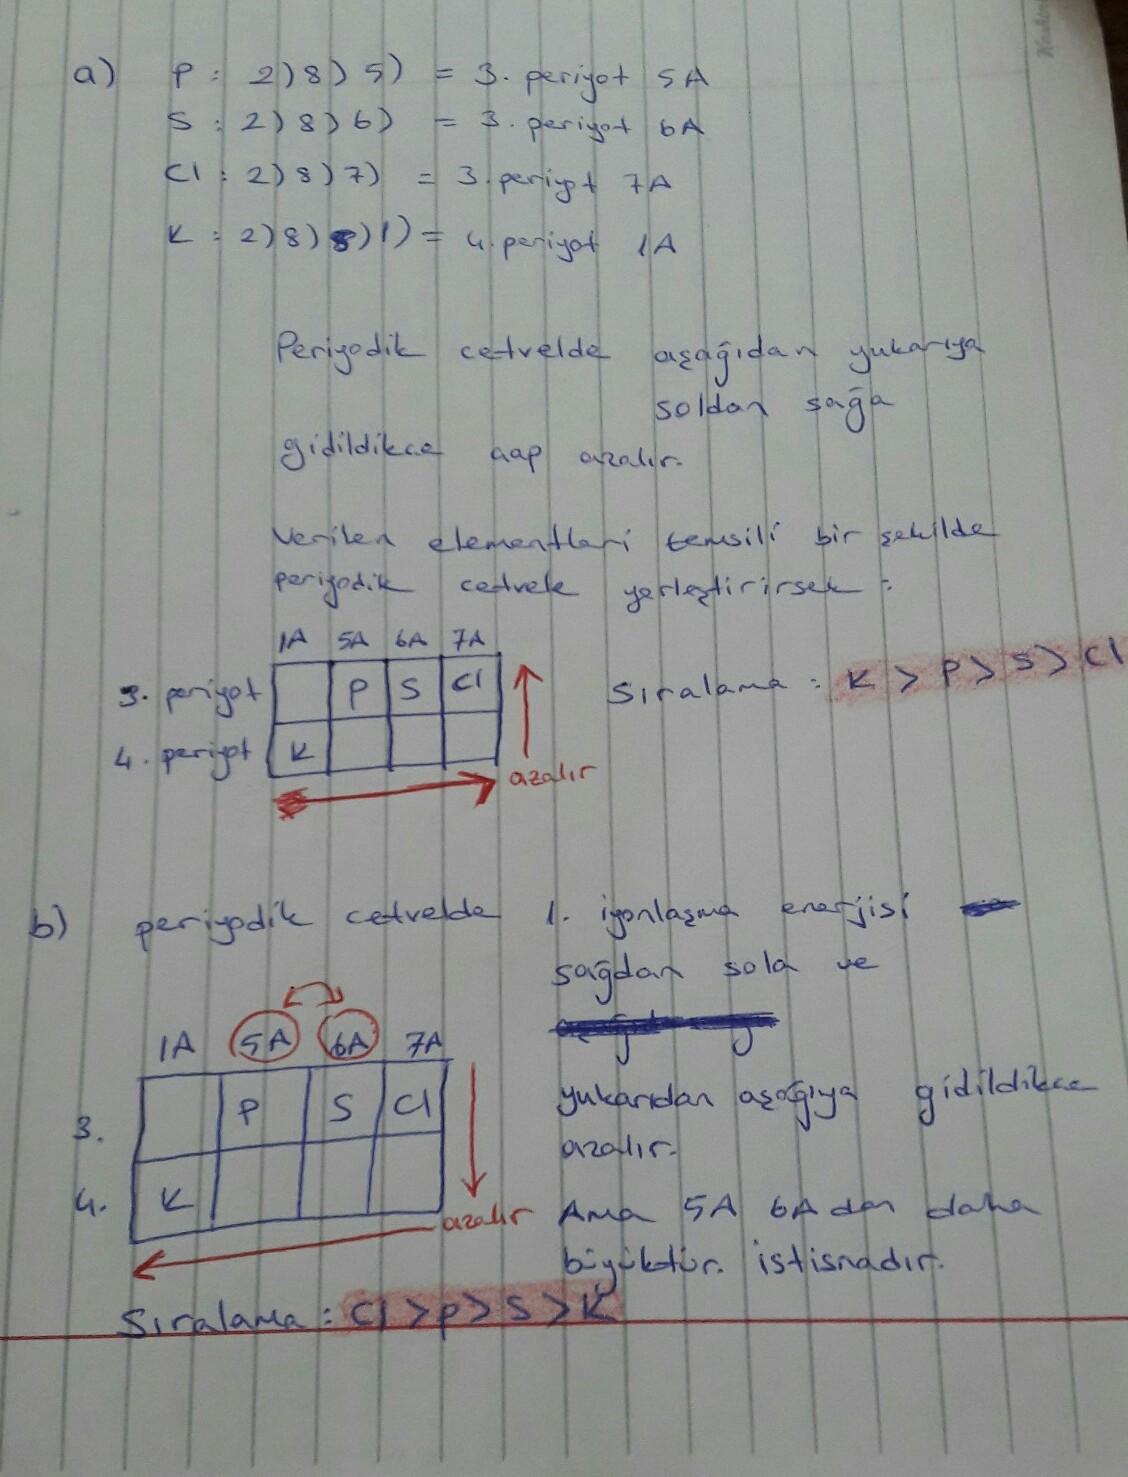 a) P : 2)8)5) = 3. periyot 5A
S : 2)8)6) = 3. periyot 6A
Cl : 2)8)7) = 3. periyot 7A
K : 2)8)8)1) = 4. periyot 1A
Periyodik cetvelde aşağıdan yukarıya
soldan sağa
gidildikce aap azalır.
Verilen elementleri temsili bir şekilde
periyodik cetvele yerleştirirsek :
1A 5A 6A 7A
3. periyot P S Cl
Sıralama : K > P > S > Cl
4. periyot K
azalır
b) periyodik cetvelde 1. iyonlaşma enerjisi
sağdan sola ve
1A 5A 6A 7A
yukarıdan aşağıya gidildikce
3. P S Cl
azalır.
4. K
azalır
Ama 5A 6A dan daha
büyüktür. istisnadır.
Sıralama : Cl > P > S > K